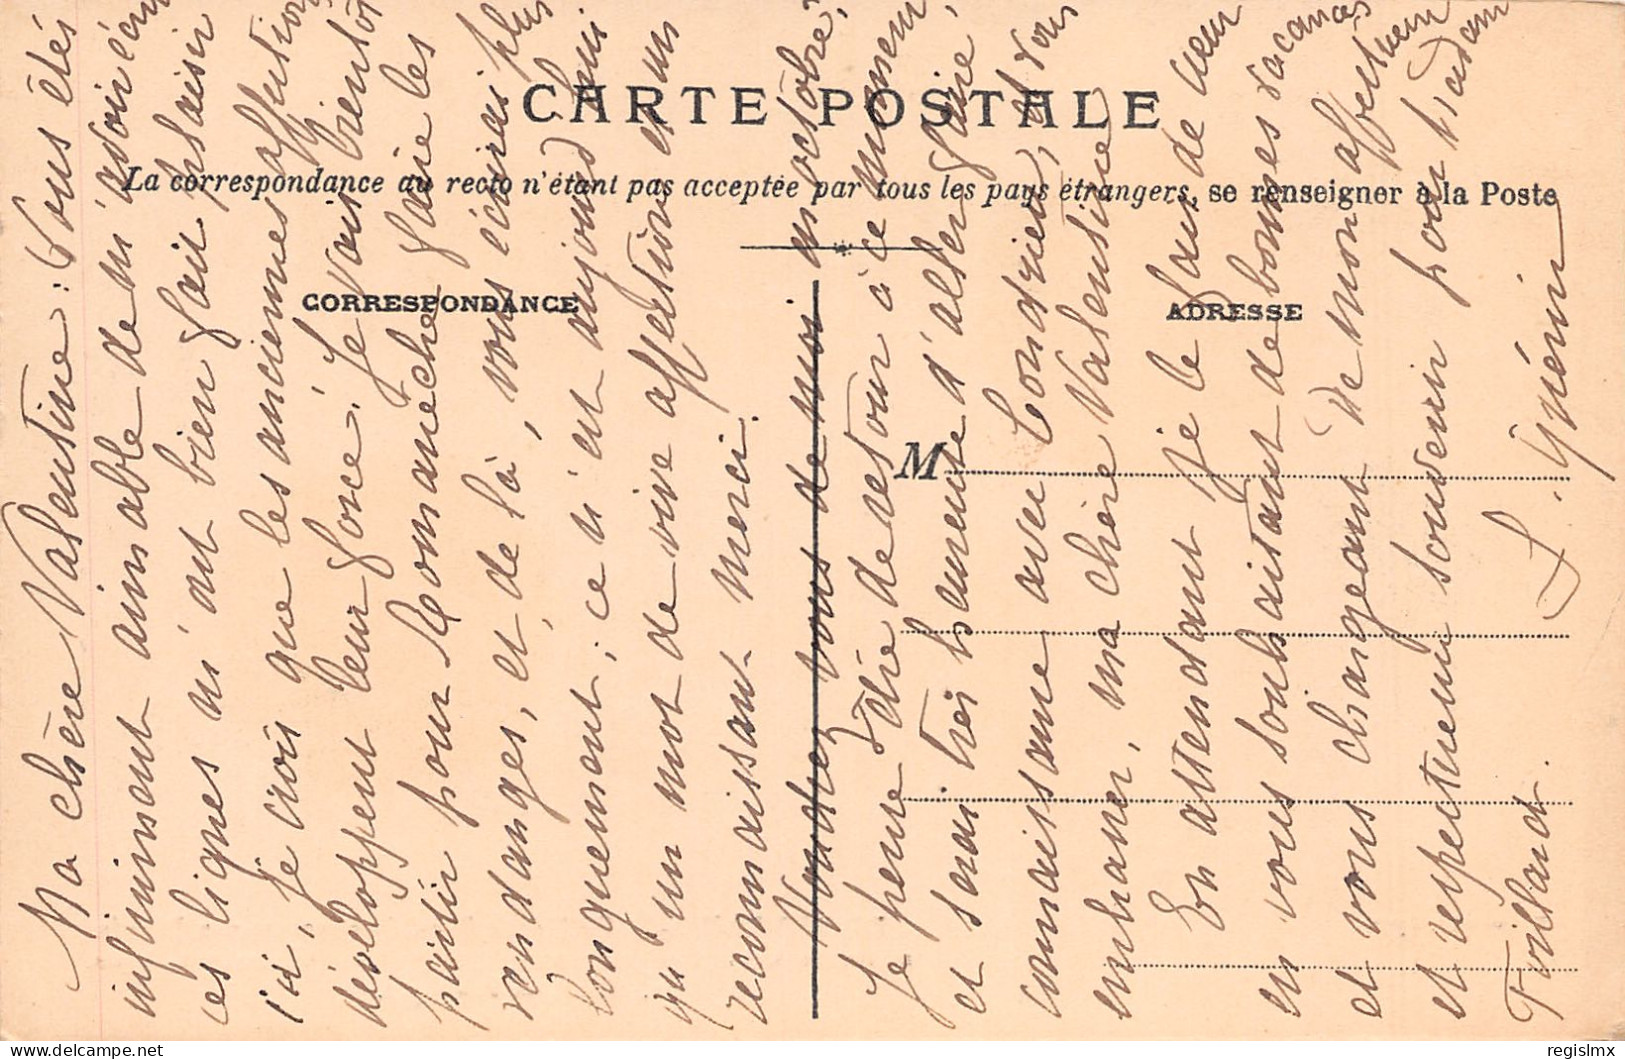 CARTE POSTALE
La correspondance au recto n'étant pas acceptée par tous les pays étrangers, se renseigner à la Poste
CORRESPONDANCE
ADRESSE
M
Ma chère Valentine : Vous êtes
infiniment aimable de m'avoir écrit
ces lignes m'ont bien fait plaisir
ici, je crois que les anciennes affections
développent leur force. Je vais bientôt
partir pour Romanèche faire les
vendanges, et, de là, vous écrirai plus
longuement ; ce n'est aujourd'hui
qu'un mot de vive affection et un
reconnaissant merci.
Voudrez vous de moi en octobre ?
Je pense être de retour à ce moment,
et serai très heureuse d'aller faire
connaissance avec Condrieu, et vous
embrasser, ma chère Valentine,
En attendant je le fais de cœur
en vous souhaitant de bonnes vacances
et vous chargeant de mon affectueux
et respectueux souvenir pour Madame
Trillat.
L. Guérin
regislmx